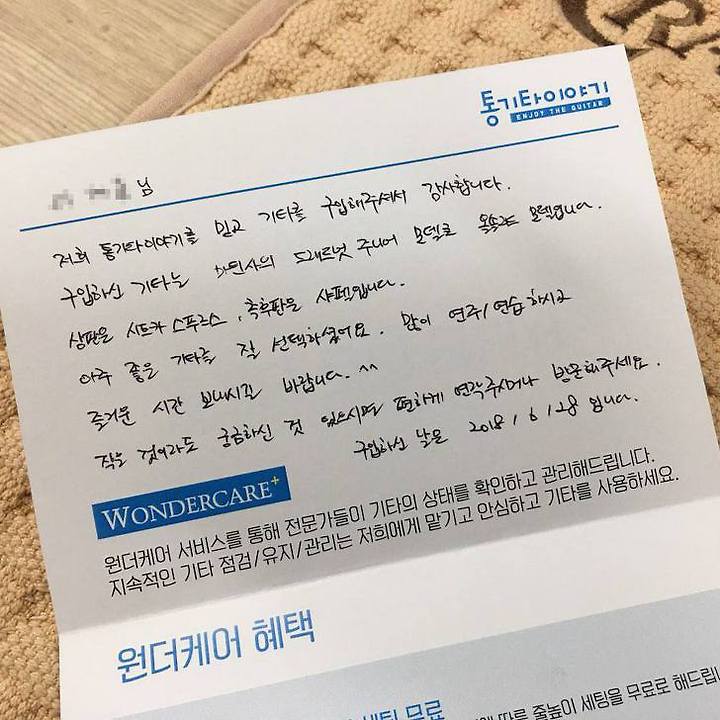 통기타이야기
ENJOY THE GUITAR
님
저희 통기타이야기를 믿고 기타를 구입해주셔서 감사합니다.
구입하신 기타는 마틴사의 드레드넛 주니어 모델로 모델입니다.
상판은 시트카 스푸르스, 측후판은 사펠입니다.
아주 좋은 기타를 잘 선택하셨어요. 많이 연주/연습하시고
즐거운 시간 보내시길 바랍니다. ^^
작은 것이라도 궁금하신 것 있으시면 편하게 연락주시거나 방문해주세요.
구입하신 날은 2018/6/28 입니다.
WONDERCARE+
원더케어 서비스를 통해 전문가들이 기타의 상태를 확인하고 관리해드립니다.
지속적인 기타 점검/유지/관리는 저희에게 맡기고 안심하고 기타를 사용하세요.
원더케어 혜택
세팅 무료
따른 줄높이 세팅을 무료로 해드립니